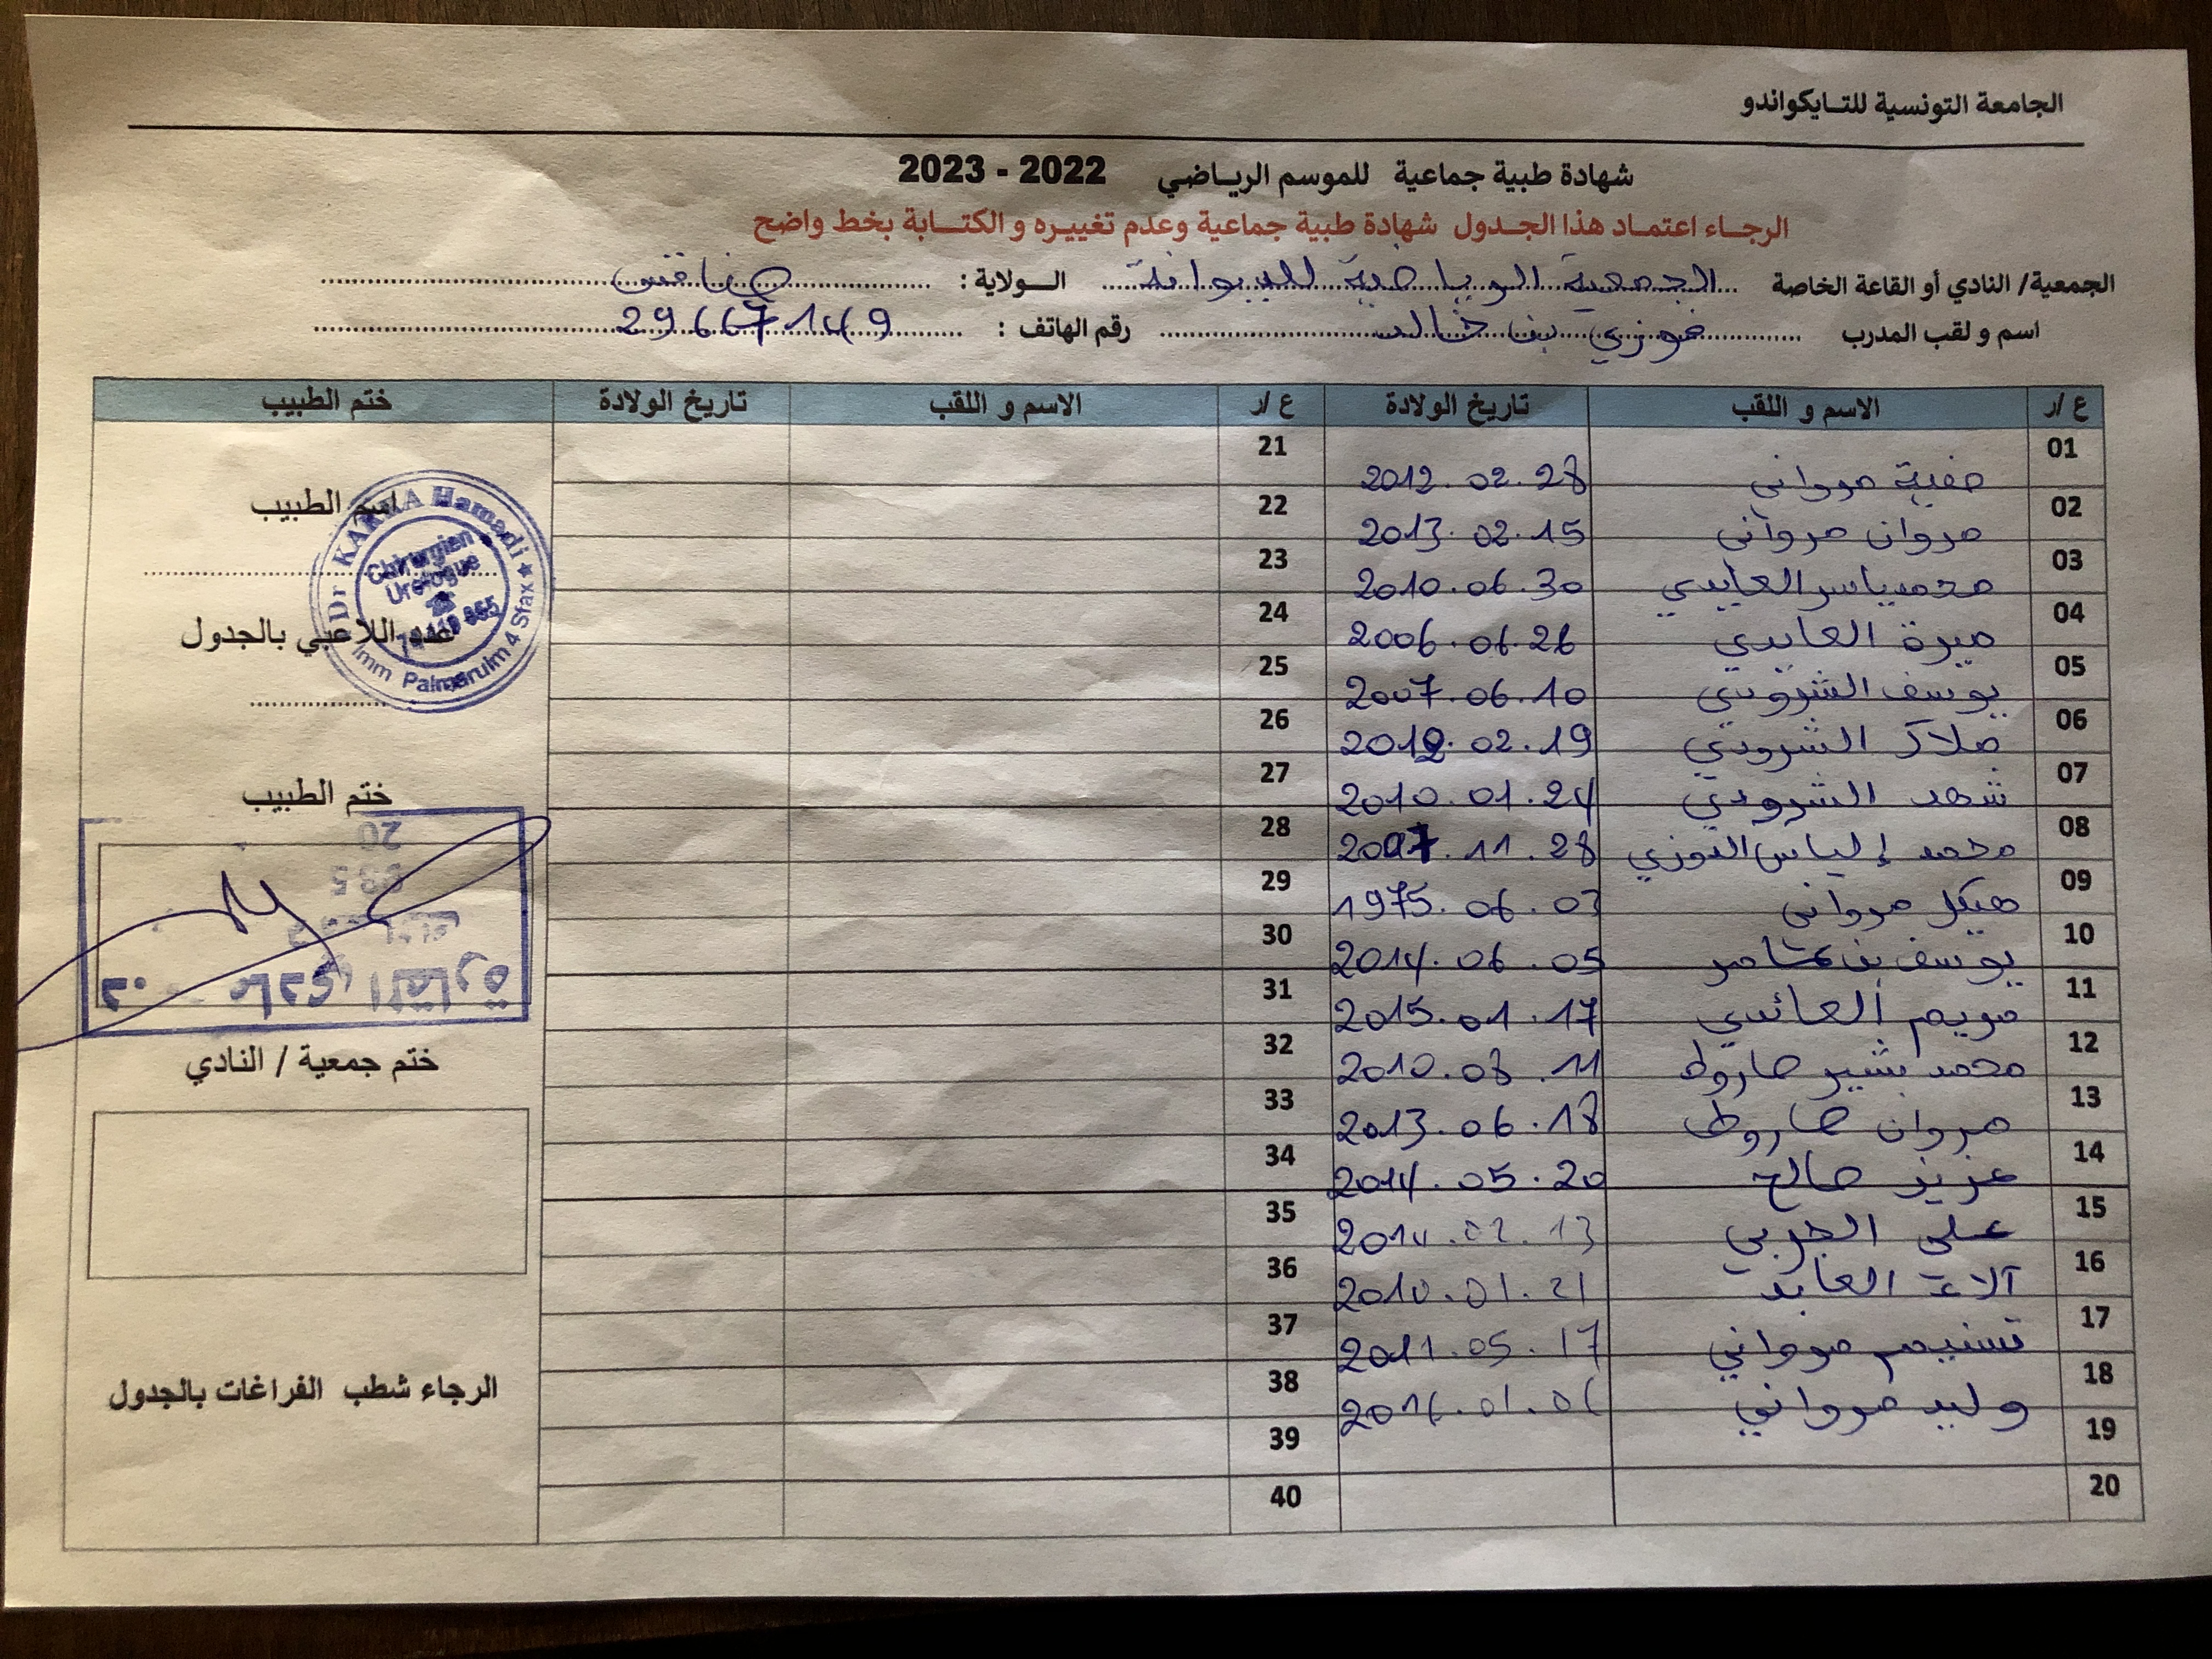 الجامعة التونسية للتايكواندو
شهادة طبية جماعية للموسم الرياضي 2022 - 2023
الرجاء اعتماد هذا الجدول شهادة طبية جماعية وعدم تغييره و الكتابة بخط واضح
الجمعية/ النادي أو القاعة الخاصة الجمعية الرياضية للبيوانة الولاية : صفاقس
اسم و لقب المدرب فوزي بن خالد رقم الهاتف : 29667149
ع /ر الاسم و اللقب تاريخ الولادة ع /ر الاسم و اللقب تاريخ الولادة ختم الطبيب
01 صفية مرواني 2012.02.28 21
02 مروان مرواني 2013.02.15 22
03 محمد ياسر العايدي 2010.06.30 23
04 ميرة العايدي 2006.06.26 24
05 يوسف الشرودي 2007.06.10 25
06 ملاك الشرودي 2012.02.19 26
07 شهد الشرودي 2010.01.24 27
08 محمد إلياس الفوزي 2007.11.28 28
09 هيكل مرواني 1975.06.03 29
10 يوسف بن 2014.06.05 30
11 مريم العائدي 2015.01.17 31
12 محمد بشير صاروط 2010.08.11 32
13 مروان صاروط 2013.06.18 33
14 عزيز صالح 2014.05.20 34
15 علي الجربي 35
16 آلاء العابد 2010.01.21 36
17 تسنيم مرواني 2011.05.17 37
18 وليد مرواني 38
19 39
20 40
اسم الطبيب
عدد اللاعبي بالجدول
Dr KARRA Hamadi
Chirurgien
Urologue
Imm Palmarium 4 Sfax
ختم الطبيب
د. حمادي القارة
ختم جمعية / النادي
الرجاء شطب الفراغات بالجدول